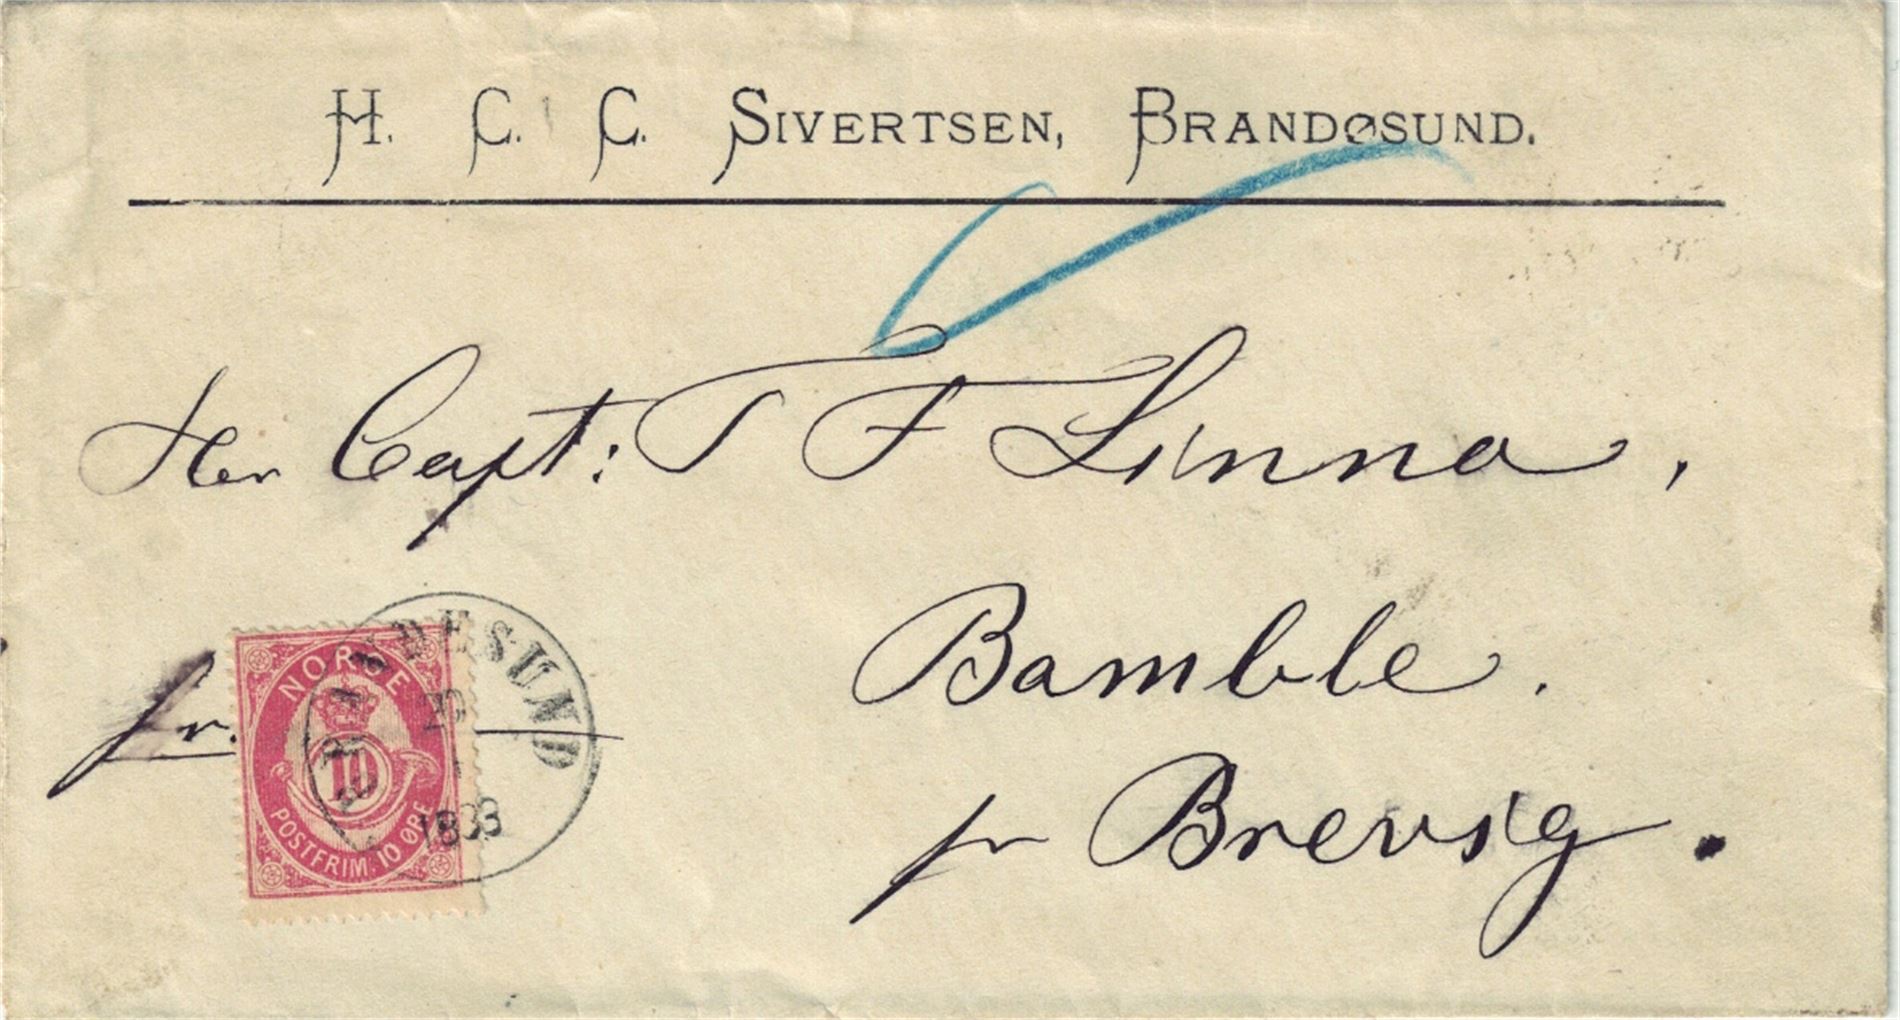 H. C. C. SIVERTSEN, BRANDØSUND.
Her Capt: T F Linna,
Bamble.
pr Brevig.
fr.
NORGE
10
POSTFRIM. 10 ØRE
BRANDESUND